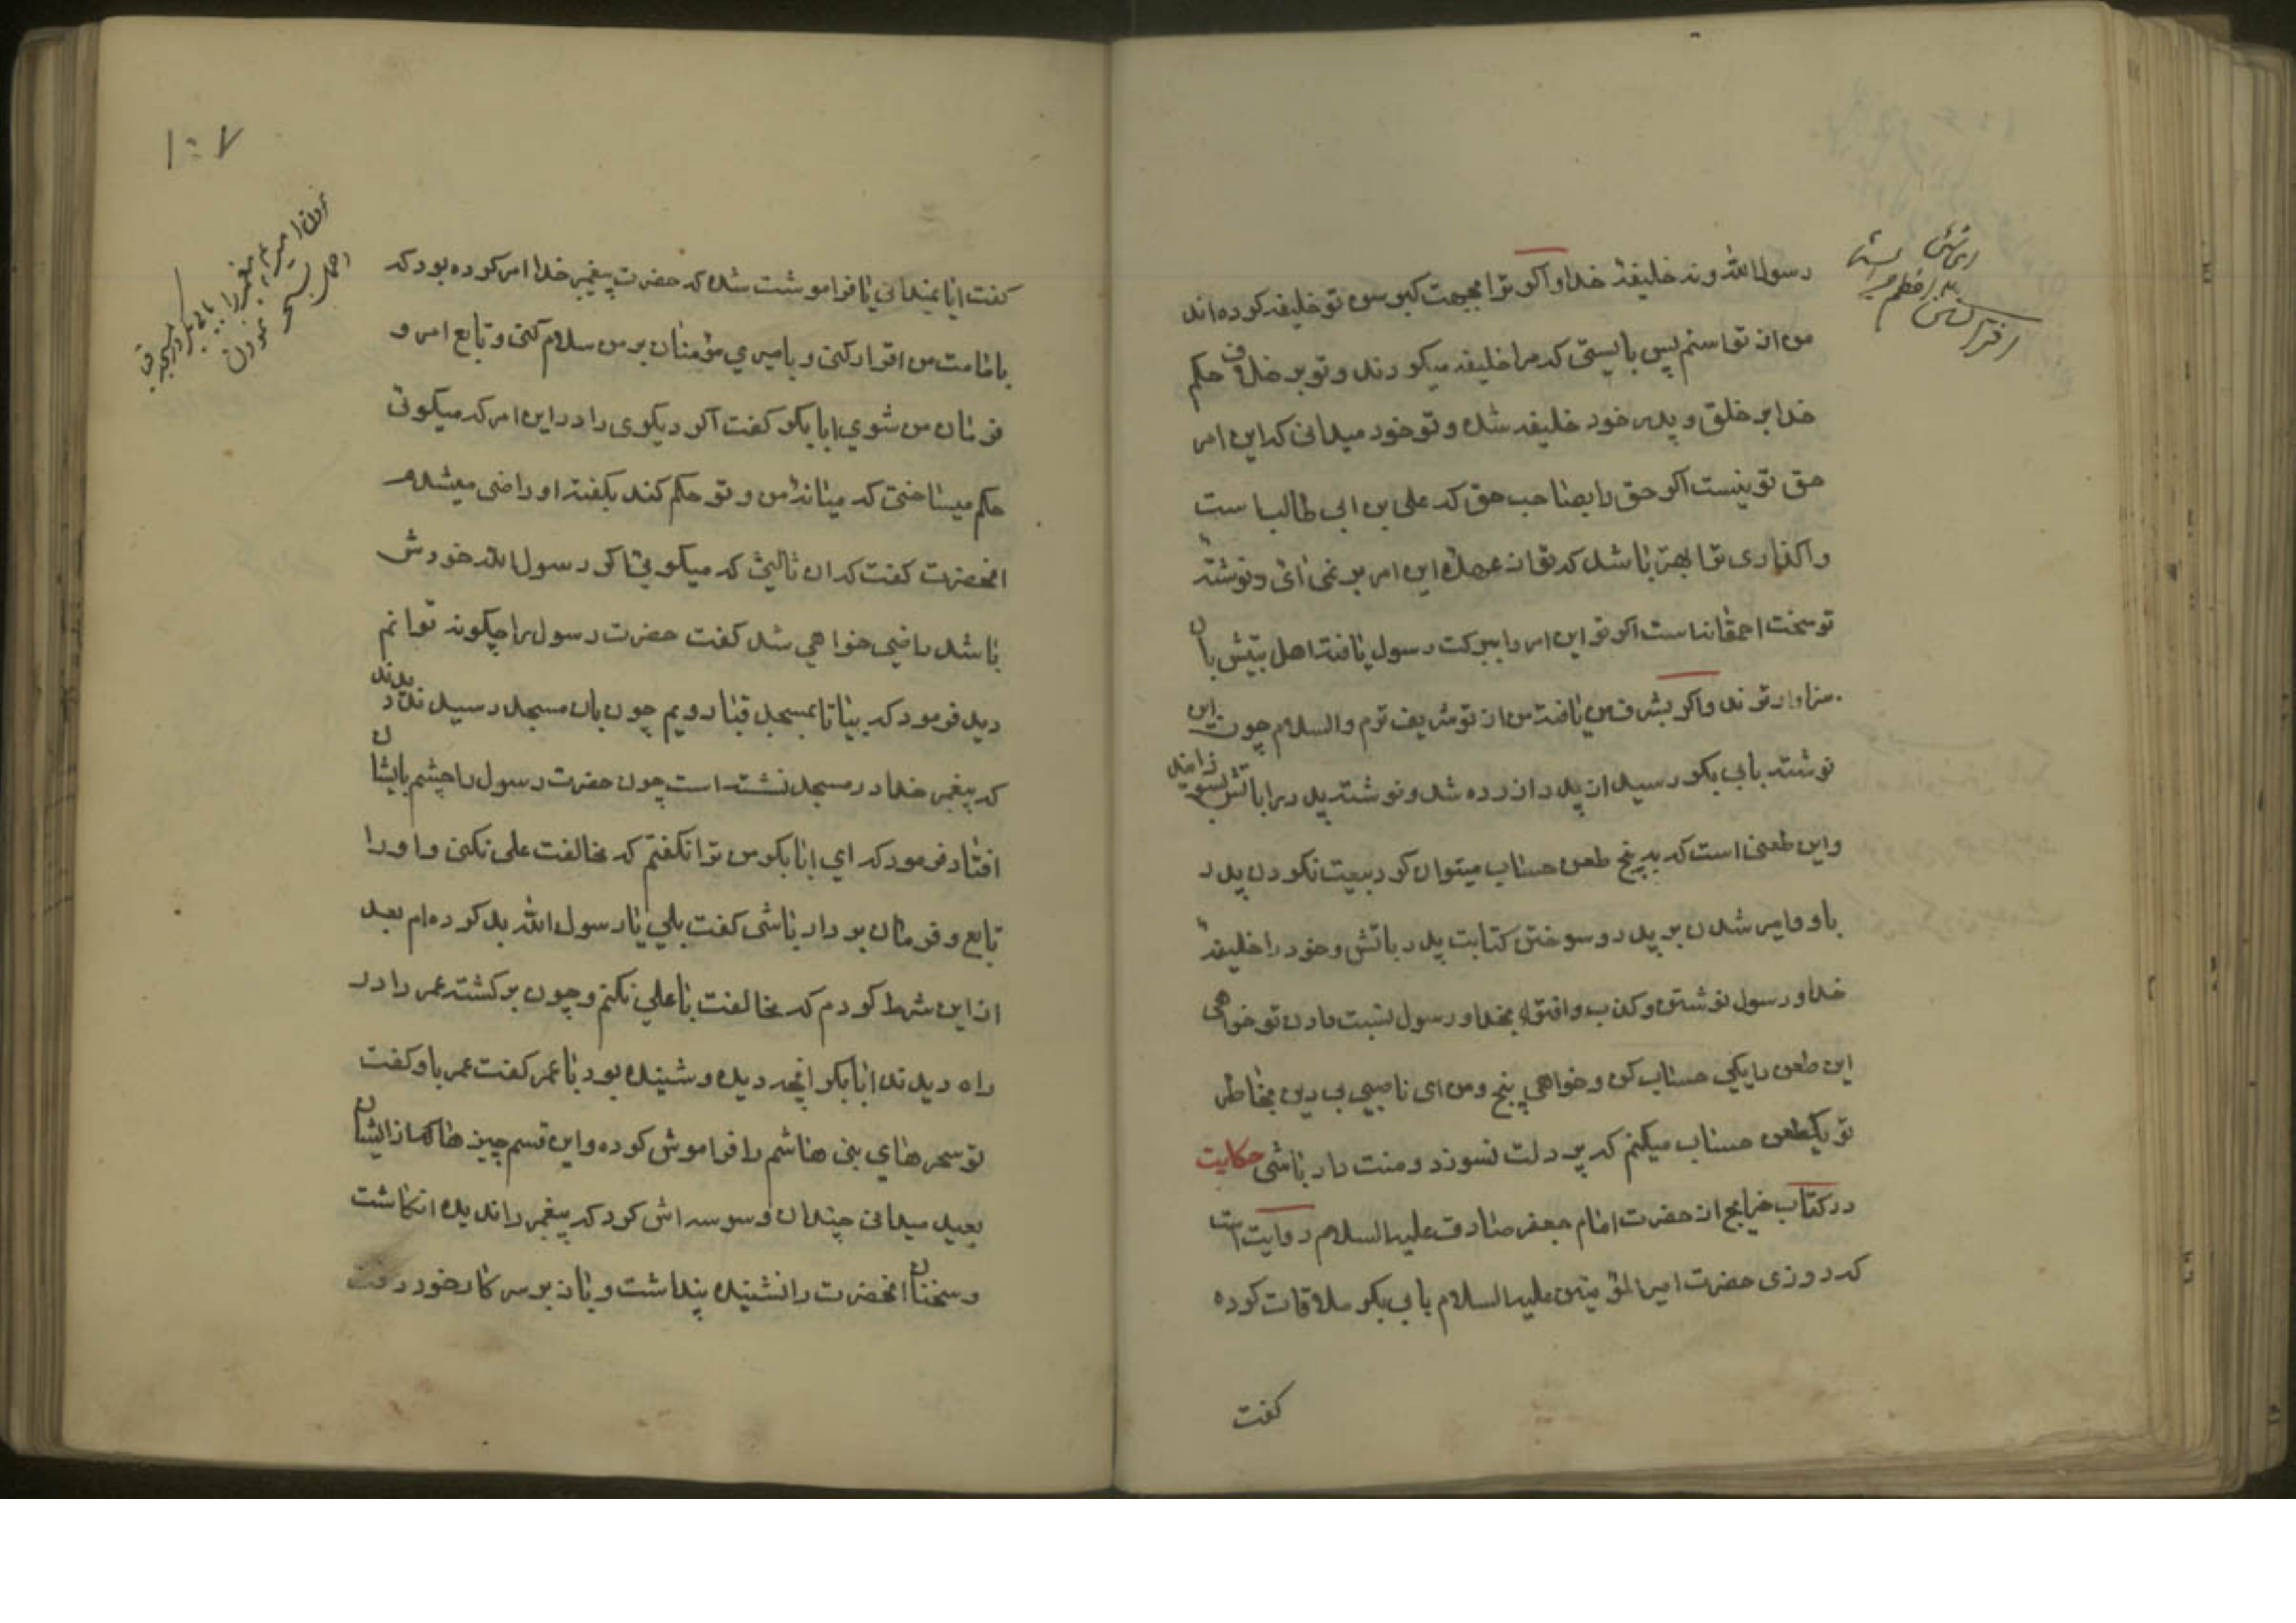 رسول الله و نه خلیفهٔ خدا و اکر ترا بجهت کبر سن تو خلیفه کرده اند
من از تو اسنم پس بایستی که مرا خلیفه میکردند و تو بر خلاف حکم
خدا بر خلق و پدر خود خلیفه شده و تو خود میدانی که این امر
حق تو نیست اکر حق را بصاحب حق که علی بن ابی طالب است
واکذاری ترا بهتر باشد که تو از عهدهٔ این امر بر نمی ائی و نوشتهٔ
تو سخت احمقانه است اکر تو این امر را ببرکت رسول یافته اهل بیتش بان
سزاوارترند و اکر بشرف من یافته من از تو شریف ترم والسلام چون این
نوشته بابی بکر رسید از پدر ازرده شد و نوشته پدر را باتش بسوزانید
و این طعنی است که به پنج طعن حساب میتوان کرد بیعت نکردن پدر
باو و امیر شدن بر پدر و سوختن کتابت پدر باتش و خود را خلیفهٔ
خدا و رسول نوشتن و کذب و افترا بخدا و رسول نسبت دادن تو خواهی
این طعن را یکی حساب کن و خواهی پنج و من ای ناصبی بی دین بخاطر
تو یکطعن حساب میکنم که پر دلت نسوزد و منت دار باشی حکایت
در کتاب خرایج از حضرت امام جعفر صادق علیه السلام روایت است
که روزی حضرت امیر المؤمنین علیه السلام بابی بکر ملاقات کرده
کفت
۱۰۷
کفت ایا نمیدانی یا فراموشت شده که حضرت پیغمبر خدا امر کرده بود که
بامامت من اقرار کنی و بامیری مؤمنان بر من سلام کنی و تابع امر و
فرمان من شوی ابا بکر کفت اکر دیکری را در این امر که میکوئی
حکم میساختی که میانهٔ من و تو حکم کند بکفته او راضی میشدم
انحضرت کفت که ان ثالثی که میکوئی اکر رسول الله خودش
باشد راضی خواهی شد کفت حضرت رسول را چکونه توانم
دید فرمود که بیا تا بمسجد قبا رویم چون بان مسجد رسیدند دیدند
که پیغمبر خدا در مسجد نشسته است چون حضرت رسول را چشم بایشان
افتاد فرمود که ای ابا بکر من ترا نکفتم که مخالفت علی نکنی و او را
تابع و فرمان بردار باشی کفت بلی یا رسول الله بد کرده ام بعد
از این شرط کردم که مخالفت با علی نکنم و چون برکشته عمر را در
راه دیدند ابا بکر انچه دیده و شنیده بود با عمر کفت عمر باو کفت
تو سحرهای بنی هاشم را فراموش کرده و این قسم چیزها که از ایشان
بعید میدانی چندان وسوسه اش کرد که پیغمبر را ندیده انکاشت
و سخنان انحضرت را نشنیده پنداشت و باز بر سر کار خود رفت